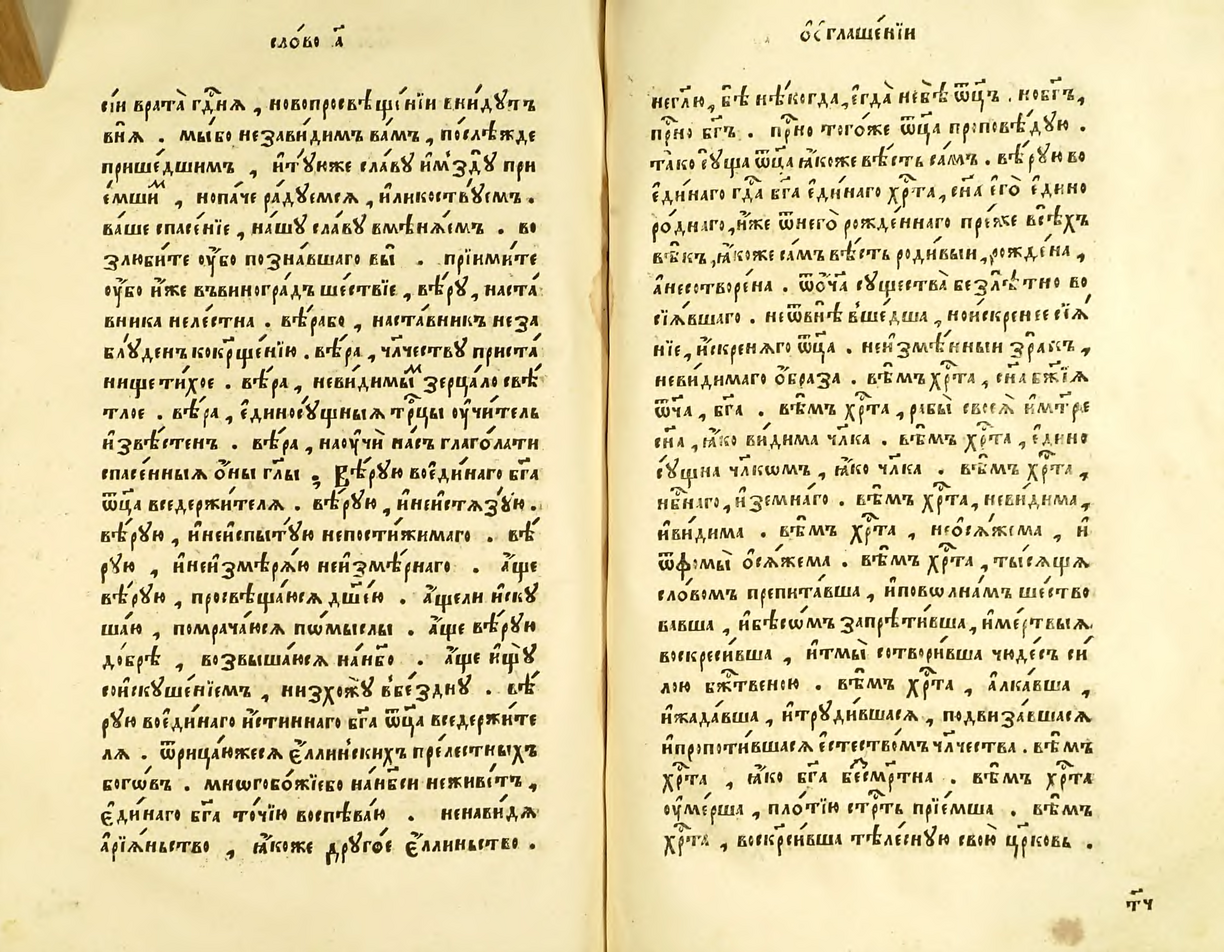 сло́во а҃
сїи врата̀ гдⷭ҇нѧ , новопросвѣще́нїи вни́дꙋтъ
вни́ѧ . мы́бо незави́димъ ва́мъ , послѣ́жде
прише́дшимъ , и҆тꙋ́юже сла́вꙋ и҆мздꙋ̀ при
е́мшиⷨ , нопа́че ра́дꙋемсѧ , и҆ликоствꙋ́емъ .
ва́ше спасе́нїе , на́шꙋ сла́вꙋ вмѣнѧ́емъ . во
злюби́те оу҆́бо позна́вшаго вы̀ . прїими́те
оу҆́бо и҆́же въвиногра́дъ ше́ствїе , вѣ́рꙋ , наста́
вника неле́стна . вѣ́рабо , наста́вникъ неза
блꙋ́денъ кокрⷭ҇ще́нїю . вѣ́ра , чл҃честву приста́
нище ти́хое . вѣ́ра , неви́димыⷨ зерца́ло свѣ́
тлое . вѣ́ра , є҆диносꙋ́щныѧ трⷪ҇цы оу҆чи́тель
и҆звѣ́стенъ . вѣ́ра , наоу҆чѝ на́съ глаго́лати
спасе́нныѧ о҆́ны гл҃ы , Вѣ́рꙋю воє҆ди́наго бг҃а
ѿц҃а вседержи́телѧ . вѣ́рꙋю , и҆неистѧзꙋ́ю .
вѣ́рꙋю , и҆неи҆спы́тꙋю непостижи́маго . вѣ́
рꙋю , и҆неи҆змѣрѧ́ю неи҆змѣ́рнаго . а҆́ще
вѣ́рꙋю , просвѣща́юсѧ дш҃е́ю . а҆́щели и҆скꙋ
ша́ю , помрача́юсѧ по́мыслы . а҆́ще вѣ́рꙋю
добрѣ̀ , возвыша́юсѧ на́нб҃о . а҆́ще и҆щꙋ̀
соискꙋше́нїемъ , низхожꙋ̀ вбе́зднꙋ . вѣ́
рꙋю воє҆ди́наго и҆́стиннаго бг҃а ѿц҃а вседержи́те
лѧ . ѿрица́южесѧ є҆́ллинскихъ пре́лестныхъ
богѡ́въ . мнѡгобо́жїебо нанб҃си неживе́тъ ,
є҆ди́наго бг҃а то́чїю воспѣва́ю . ненави́дѧ
а҆рїѧ́ньство , ꙗ҆́коже дрꙋго́е є҆́ллиньство .
ѡ҆ ѻ҆глаше́нїи
неглю҃ , бѣ̀ нѣ́когда , є҆гда̀ небѣ̀ ѿц҃ъ . нобг҃ъ ,
прⷭ҇но бг҃ъ . прⷭ҇но того́же ѿц҃а проповѣ́дꙋю .
та́ко сꙋ́ща ѿц҃а ꙗ҆́коже вѣ́сть са́мъ . вѣ́рꙋю во
є҆ди́наго гдⷭ҇а бг҃а є҆ди́наго хрⷭ҇та , сн҃а є҆го̀ є҆дино
ро́днаго , и҆́же ѿнего̀ рожде́ннаго пре́же всѣ́хъ
вѣ́къ , ꙗ҆́коже са́мъ вѣ́сть роди́выи , рожде́на ,
а҆несотворе́на . ѿо́ч҃а сꙋщества̀ безлѣ́тно во
сїѧ́вшаго . неѿвнѣ̀ вше́дша , ноискренее сїѧ́
нїе , и҆́скренѧго ѿц҃а . неи҆змѣ́нныи зра́къ ,
неви́димаго о҆́браза . вѣ́мъ хрⷭ҇та , сн҃а бж҃їѧ
ѿч҃а , бг҃а . вѣ́мъ хрⷭ҇та , рабы̀ своеѧ̀ и҆мт҃ре
сн҃а , ꙗ҆́ко ви́дима чл҃ка . вѣ́мъ хрⷭ҇та , є҆дино
сꙋ́щна чл҃кѡмъ , ꙗ҆́ко чл҃ка . вѣ́мъ хрⷭ҇та ,
нбⷭ҇наго , и҆земна́го . вѣ́мъ хрⷭ҇та , неви́дима ,
и҆ви́дима . вѣ́мъ хрⷭ҇та , неѻ҆сѧ́жема , и҆
ѿфомы̀ ѻ҆сѧ́жема . вѣ́мъ хрⷭ҇та , ты́сѧщѧ
сло́вомъ препита́вша , и҆повѡлна́мъ ше́ство
вавша , и҆бѣсѡ́мъ запрѣти́вша , и҆ме́ртвыѧ
воскреси́вша , и҆тмы̀ сотвори́вша чюде́съ си́
лою бжⷭ҇твеною . вѣ́мъ хрⷭ҇та , а҆лка́вша ,
и҆жада́вша , и҆трꙋди́вшасѧ , подвиза́вшасѧ
и҆пропоти́вшасѧ є҆стество́мъ чл҃чества . вѣ́мъ
хрⷭ҇та , ꙗ҆́ко бг҃а бесме́ртна . вѣ́мъ хрⷭ҇та
оу҆ме́рша , пло́тїю стрⷭ҇ть прїе́мша . вѣ́мъ
хрⷭ҇та , воскреси́вша тѣле́снꙋю свою̀ цр҃ковь .
т҃ч